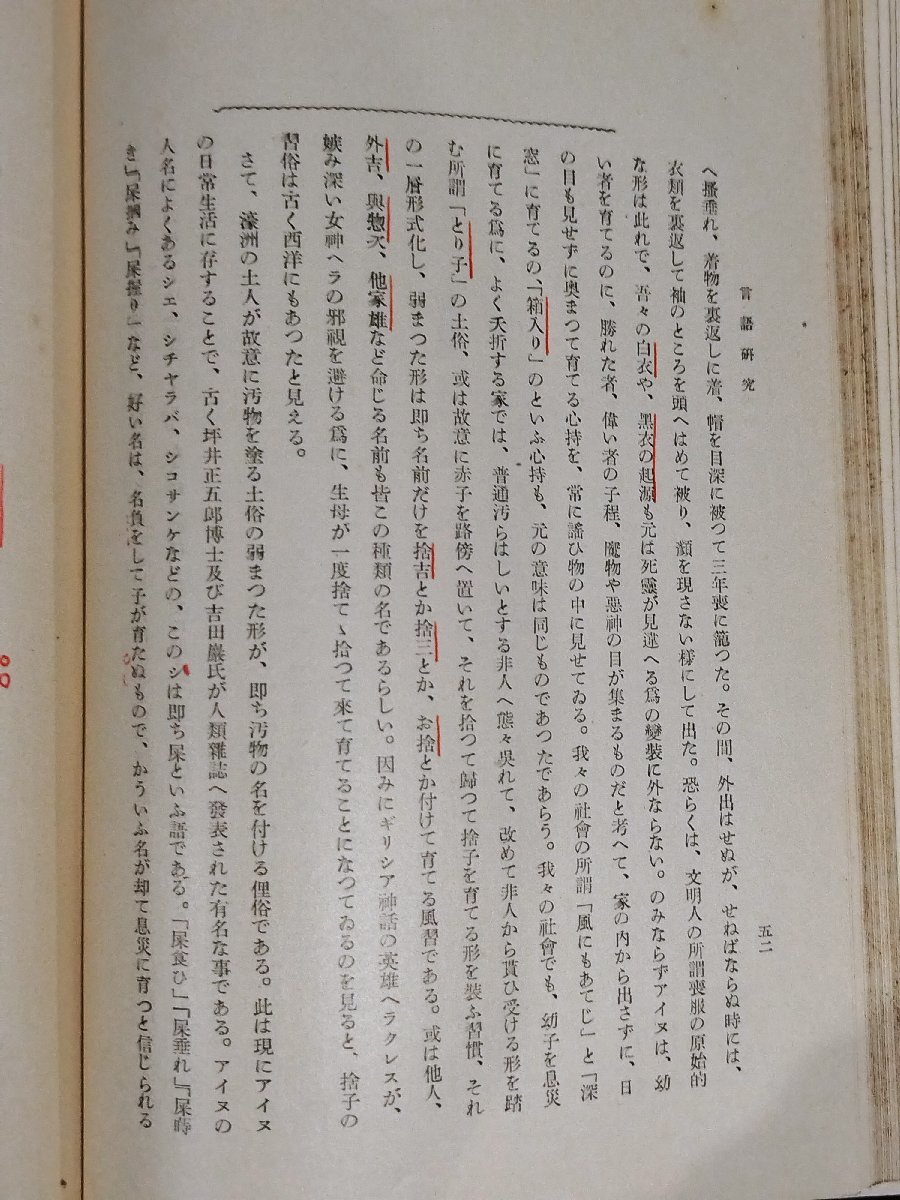 言語研究
五二
へ搔垂れ、着物を裏返しに着、帽を目深に被つて三年喪に籠つた。その間、外出はせぬが、せねばならぬ時には、
衣類を裏返して袖のところを頭へはめて被り、顔を現さない様にして出た。恐らくは、文明人の所謂喪服の原始的
な形は此れで、吾々の白衣や、黒衣の起源も元は死靈が見違へる爲の變裝に外ならない。のみならずアイヌは、幼
い者を育てるのに、勝れた者、偉い者の子程、魔物や惡神の目が集まるものだと考へて、家の内から出さずに、日
の目も見せずに奥まつて育てる心持を、常に謠ひ物の中に見せてゐる。我々の社會の所謂「風にもあてじ」と「深
窓」に育てるの、「箱入り」のといふ心持も、元の意味は同じものであつたであらう。我々の社會でも、幼子を息災
に育てる爲に、よく夭折する家では、普通汚らはしいとする非人へ態々吳れて、改めて非人から貰ひ受ける形を踏
む所謂「とり子」の土俗、或は故意に赤子を路傍へ置いて、それを拾つて歸つて捨子を育てる形を裝ふ習慣、それ
の一層形式化し、弱まつた形は即ち名前だけを捨吉とか捨三とか、お捨とか付けて育てる風習である。或は他人、
外吉、與惣次、他家雄など命じる名前も皆この種類の名であるらしい。因みにギリシア神話の英雄ヘラクレスが、
嫉み深い女神ヘラの邪視を避ける爲に、生母が一度捨てゝ拾つて來て育てることになつてゐるのを見ると、捨子の
習俗は古く西洋にもあつたと見える。
さて、濠洲の土人が故意に汚物を塗る土俗の弱まつた形が、即ち汚物の名を付ける俚俗である。此は現にアイヌ
の日常生活に存することで、古く坪井正五郎博士及び吉田巖氏が人類雜誌へ發表された有名な事である。アイヌの
人名によくあるシエ、シチヤラパ、シコサンケなどの、このシは即ち屎といふ語である。「屎食ひ」「屎垂れ」「屎蒔
き」「屎摑み」「屎握り」など、好い名は、名負をして子が育たぬもので、かういふ名が却て息災に育つと信じられる